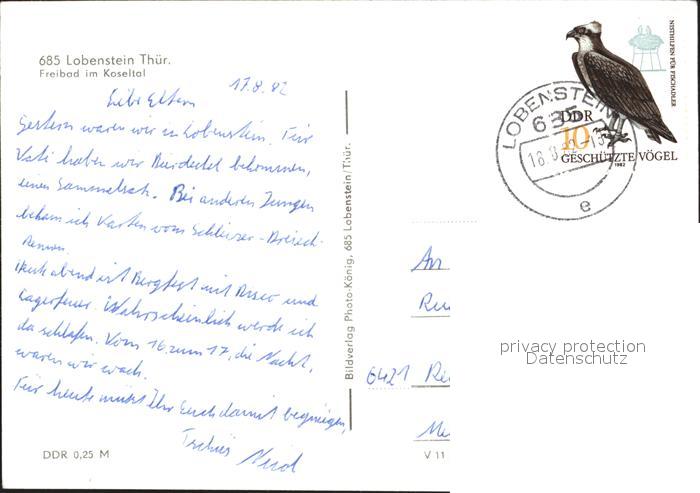 685 Lobenstein Thür.
Freibad im Koseltal
17.8.82
Liebe Eltern
Gestern waren wir in Lobenstein. Für
Vati haben wir Bierdeckel bekommen,
einen Sammelsack. Bei anderen Jungen
bekam ich Karten vom Schleizer-Dreieck-
Rennen.
Heut abend ist Bergfest mit Disco und
Lagerfeuer. Wahrscheinlich werde ich
da schlafen. Vom 16. zum 17., die Nacht,
waren wir wach.
Für heute müßt Ihr Euch damit begnügen,
Tschüs
DDR 0,25 M
Bildverlag Photo-König, 685 Lobenstein/Thür.
V 11
An
6421
NISTHILFEN FÜR FISCHADLER
DDR
10
GESCHÜTZTE VÖGEL
1982
LOBENSTEIN
685
18.8.82
e
privacy protection
Datenschutz